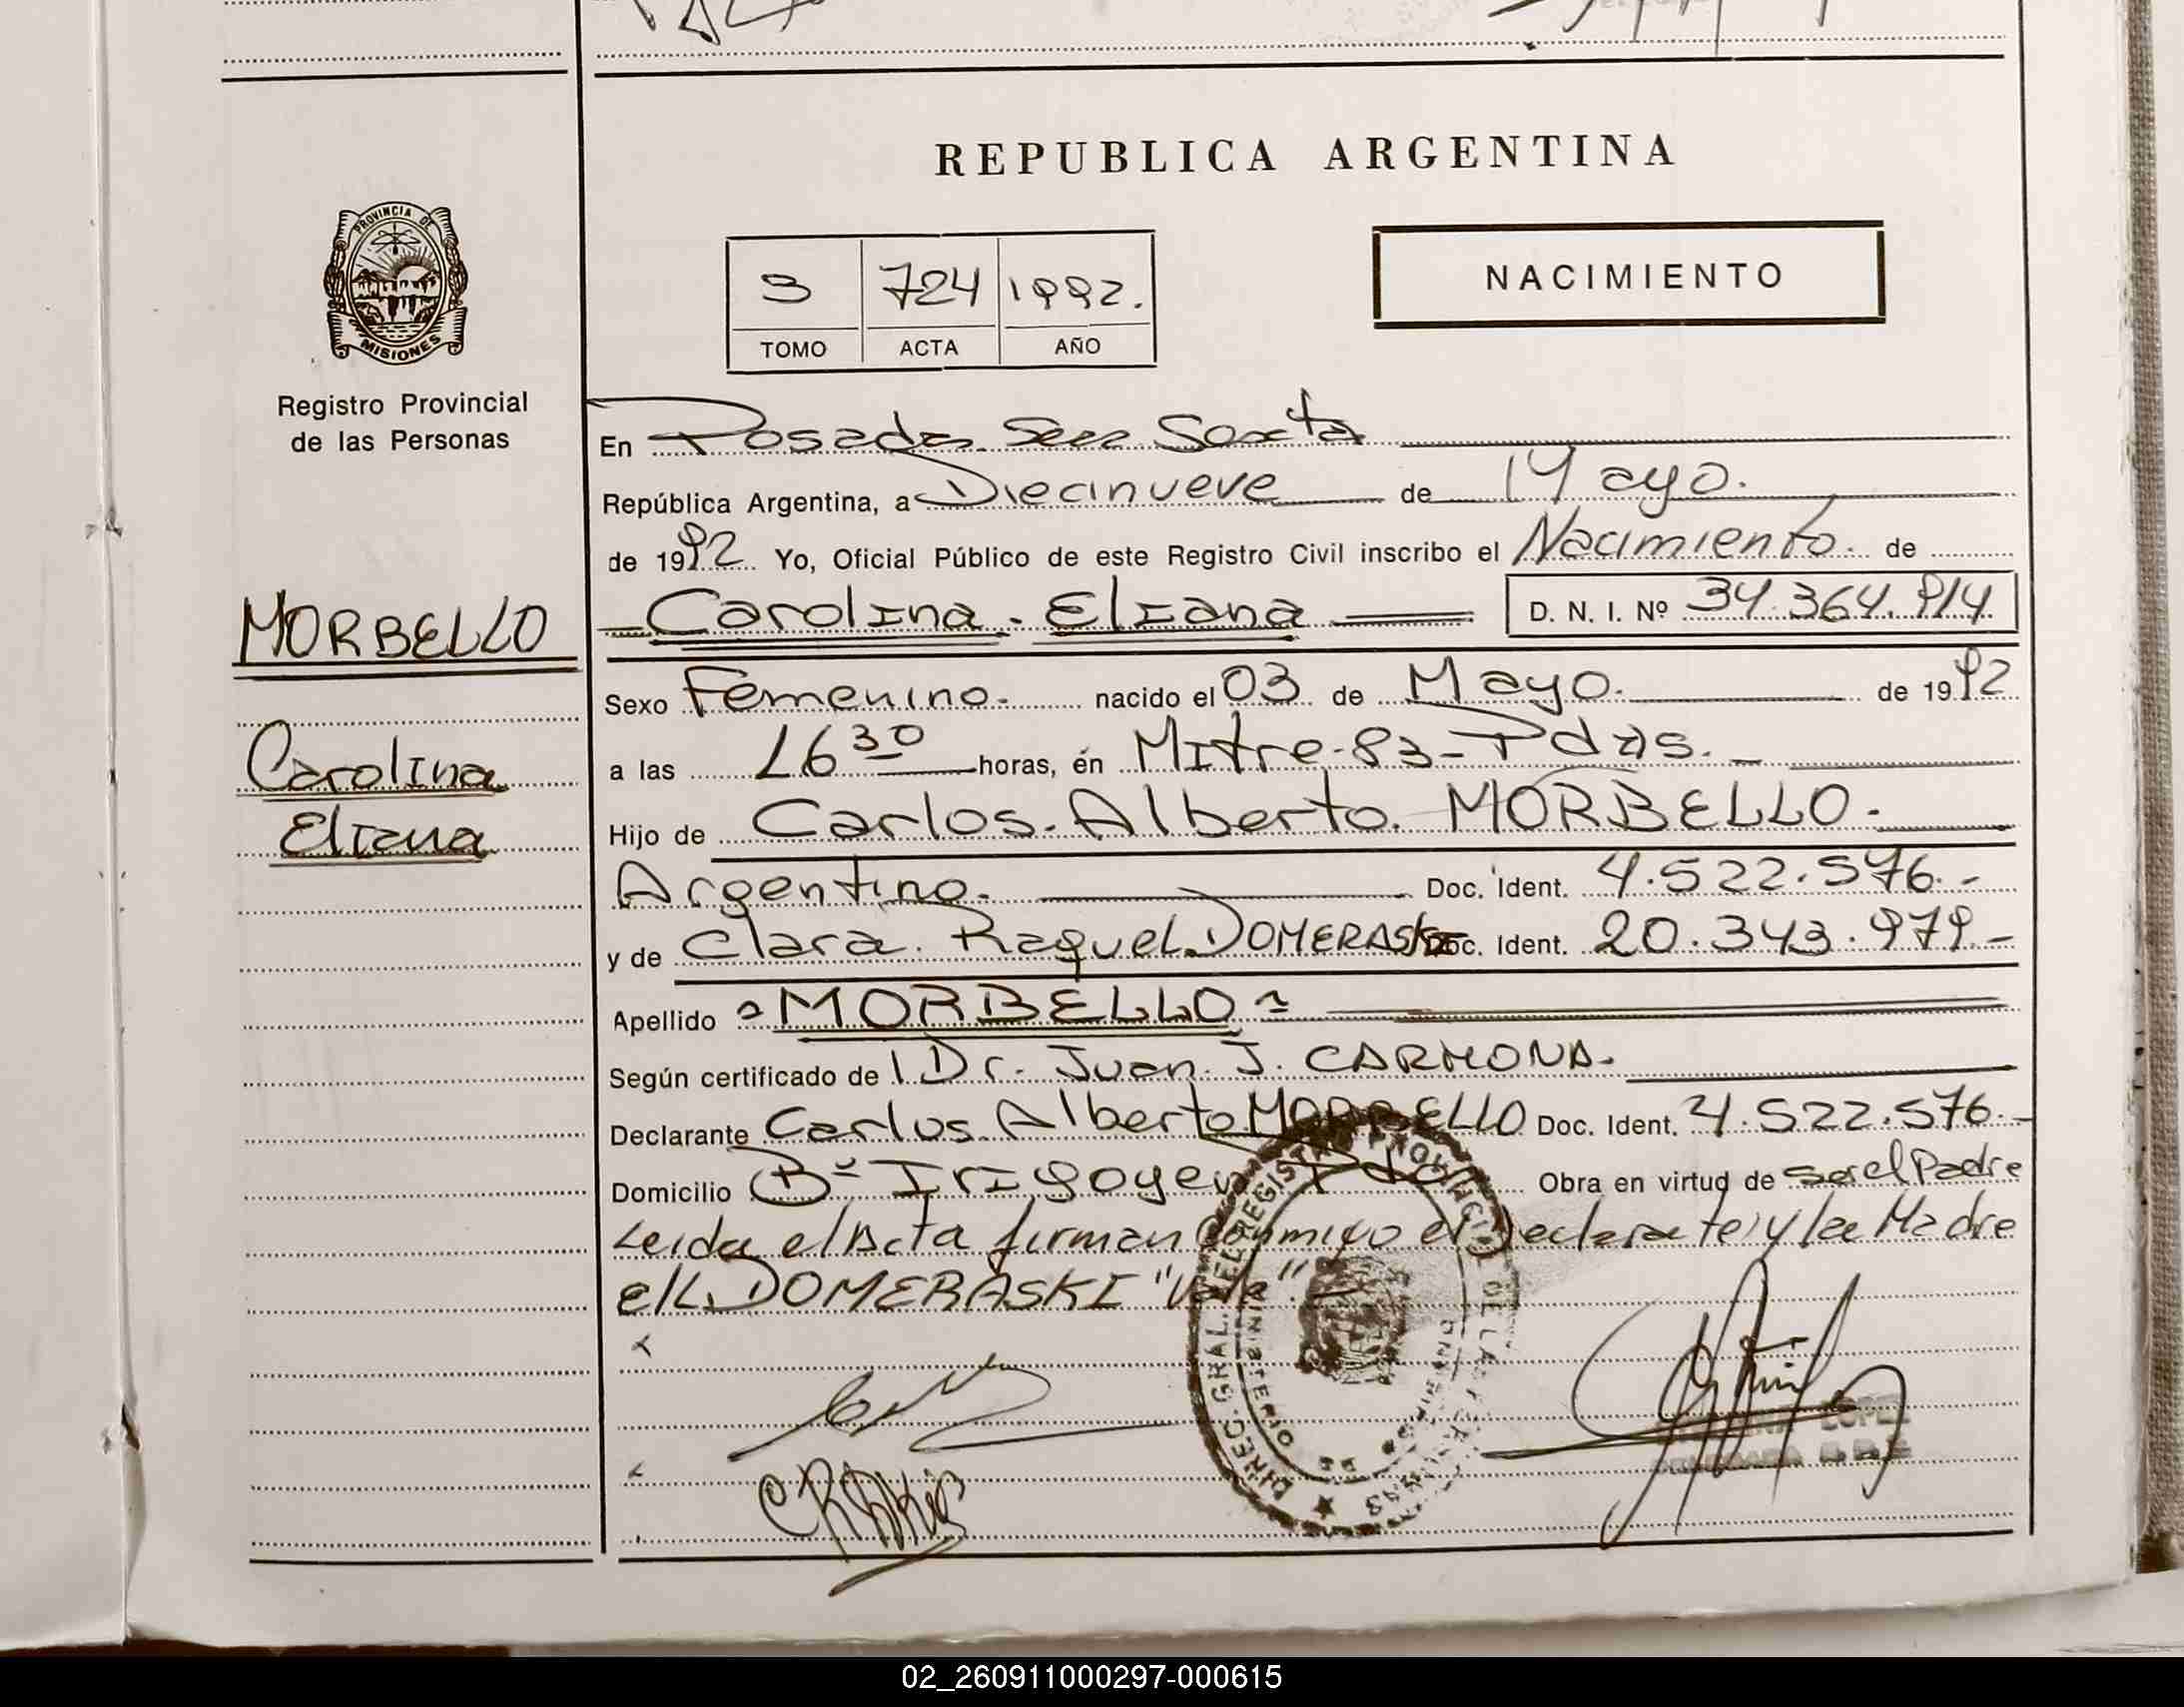 REPUBLICA ARGENTINA
PROVINCIA DE
MISIONES
Registro Provincial
de las Personas
3 724 1992.
TOMO ACTA AÑO
NACIMIENTO
MORBELLO
Carolina
Eliana
En Posadas Secc Sexta
República Argentina, a Diecinueve de Mayo.
de 1992 Yo, Oficial Público de este Registro Civil inscribo el Nacimiento. de
Carolina. Eliana D. N. I. Nº 34.364.914
Sexo Femenino. nacido el 03 de Mayo. de 1992
a las 16 30 horas, en Mitre-83-Pdas.
Hijo de Carlos. Alberto. MORBELLO.
Argentino. Doc. Ident. 4.522.576.-
y de Clara. Raquel. DOMERASKI Doc. Ident. 20.343.979-
Apellido MORBELLO
Según certificado de l Dr. Juan. J. CARMONA.
Declarante Carlos. Alberto. MORBELLO Doc. Ident. 4.522.576.-
Domicilio Bº Irigoyen Pdas Obra en virtud de ser el Padre
Leida el Acta firman conmigo el Declarante y la Madre
e/L. DOMERASKI "Vale".
DIREC. GRAL. DEL REGISTRO PROVINCIAL DE LAS PERSONAS
MINISTERIO DE GOBIERNO
LOPEZ